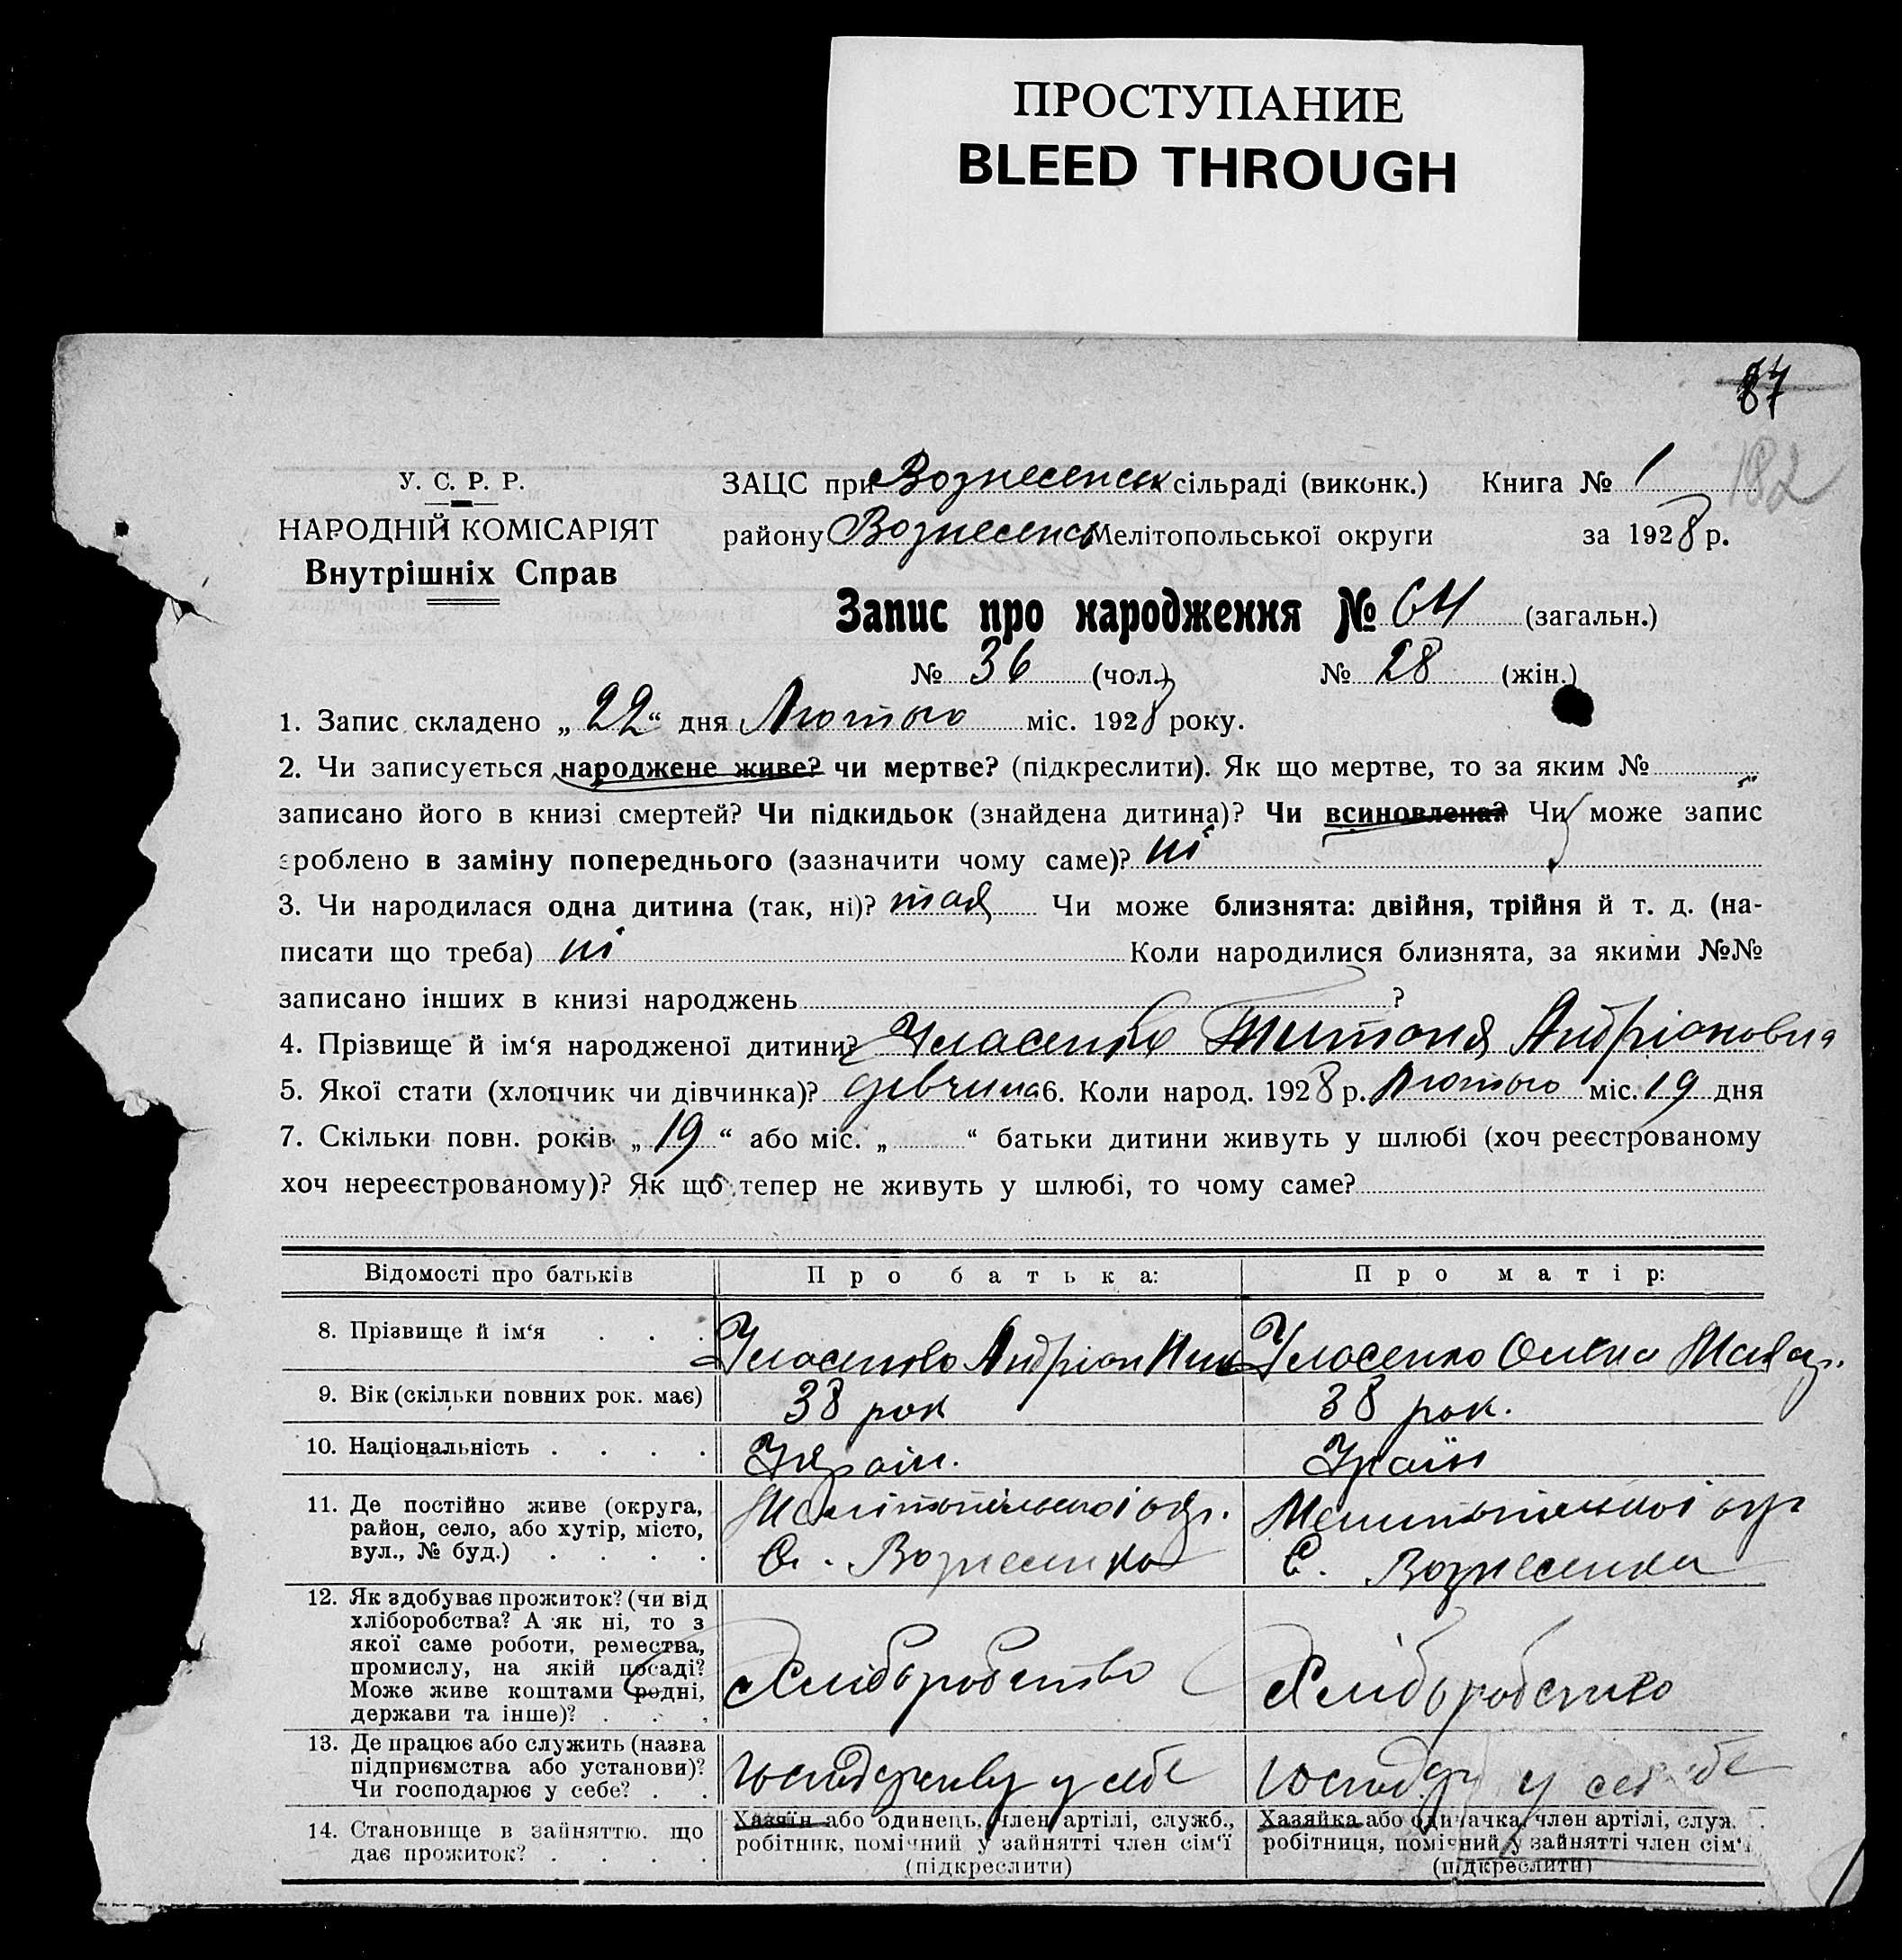 ПРОСТУПАНИЕ
BLEED THROUGH
87
182
У. С. Р. Р.
НАРОДНІЙ КОМІСАРІЯТ
Внутрішніх Справ
ЗАЦС при Вознесенськ сільраді (виконк.) Книга № 1
району Вознесенсь Мелітопольської округи за 1928 р.
Запис про народження № 64 (загальн.)
№ 36 (чол.) № 28 (жін.)
1. Запис складено „ 22 “ дня Лютого міс. 1928 року.
2. Чи записується народжене живе? чи мертве? (підкреслити). Як що мертве, то за яким №
записано його в книзі смертей? Чи підкидьок (знайдена дитина)? Чи всиновлена? Чи може запис
зроблено в заміну попереднього (зазначити чому саме)? ні
3. Чи народилася одна дитина (так, ні)? так Чи може близнята: двійня, трійня й т. д. (на-
писати що треба) ні Коли народилися близнята, за якими №№
записано інших в книзі народжень ?
4. Прізвище й ім‘я народженої дитини? Уласенко Андріановна
5. Якої стати (хлопчик чи дівчинка)? дівчина 6. Коли народ. 1928 р. Лютого міс. 19 дня
7. Скільки повн. років „ 19 “ або міс. „ “ батьки дитини живуть у шлюбі (хоч реєстрованому
хоч нереєстрованому)? Як що тепер не живуть у шлюбі, то чому саме?
Відомості про батьків Про батька: Про матір:
8. Прізвище й ім‘я Уласенко Андріан Ник Уласенко Олена
9. Вік (скільки повних рок. має) 38 рок 38 рок.
10. Національність Україн. Україн
11. Де постійно живе (округа,
район, село, або хутір, місто,
вул., № буд.)
Мелітопільської окр.
С. Вознесенка
Мелитопильської окр
С. Вознесенка
12. Як здобуває прожиток? (чи від
хліборобства? А як ні, то з
якої саме роботи, ремества,
промислу, на якій посаді?
Може живе коштами родні,
держави та інше)?
Хліборобство
Хліборобство
13. Де працює або служить (назва
підприємства або установи)?
Чи господарює у себе?
у себе
у себе
14. Становище в зайняттю, що
дає прожиток?
Хазяїн або одинець, член артілі, служб.,
робітник, помічний у зайнятті член сім‘ї
(підкреслити)
Хазяйка або одиначка, член артілі, служ.
робітниця, помічний у зайнятті член сім‘ї
(підкреслити)